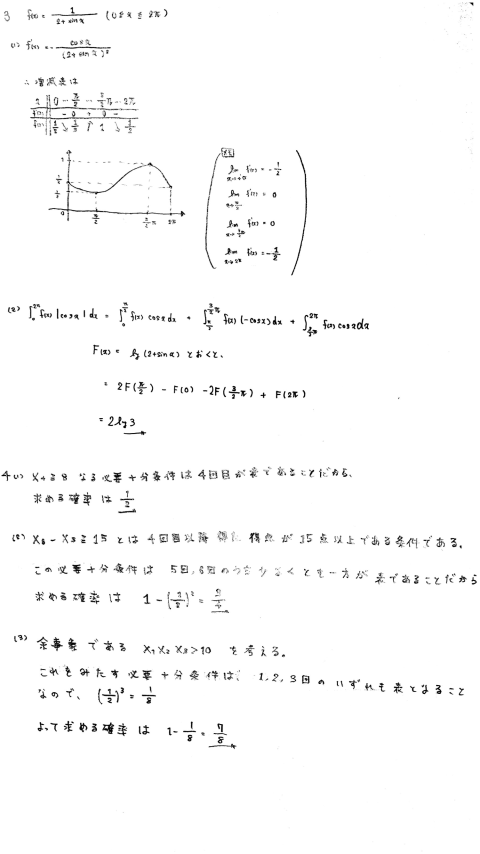 3 f(x) = 1/(2+sin x) (0≦x≦2π)
(1) f'(x) = - cos x/(2+sin x)²
∴ 増減表は
x | 0 … π/2 … 3/2π … 2π
f'(x) | - 0 + 0 -
f(x) | 1/2 ↘ 1/3 ↗ 1 ↘ 1/2
1
1/2
1/3
0 π/2 3/2π 2π
lim x→+0 f'(x) = -1/4
lim x→π/2 f'(x) = 0
lim f'(x) = 0
lim x→2π f'(x) = -1/4
(2) ∫₀^2π f(x)|cos x|dx = ∫₀^π/2 f(x) cos x dx + ∫_π/2^3/2π f(x)(-cos x)dx + ∫_3/2π^2π f(x) cos x dx
F(x) = log(2+sin x) とおくと、
= 2F(π/2) - F(0) - 2F(3/2π) + F(2π)
= 2log3
4 (1) X₄≧8 なる必要十分条件は4回目が表であることだから、
求める確率は 1/2
(2) X₆ - X₃ ≧ 15 とは4回目以降得た得点が15点以上である条件である。
この必要十分条件は 5回,6回のうち少なくとも一方が表であることだから
求める確率は 1 - (1/2)² = 3/4
(3) 余事象である X₁X₂X₃>10 を考える。
これをみたす必要十分条件は、1,2,3回のいずれも表となること
なので、(1/2)³ = 1/8
よって求める確率は 1 - 1/8 = 7/8